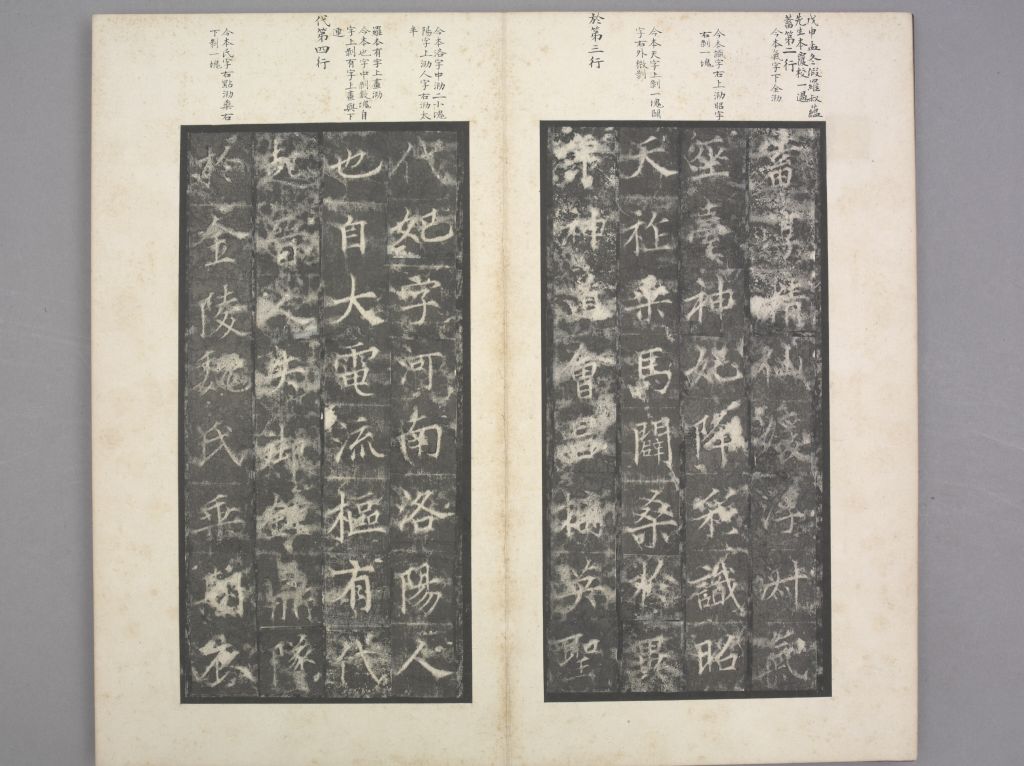 戊申孟冬假羅叔蘊
先生本覆校一過
蓄第二行
今本氣字下全泐
今本識字右上泐昭字
右剝一塊
於第三行
今本天字上剝一塊闢
字右外微剝
蓄 情仙 浮 氣
巫臺神妃降彩識昭
天祚来馬闢桑於異
帝神道會昌構英聖
今本洛字中泐二小塊
陽字上泐人字右泐太
半
羅本有字上畫泐
今本也字中剝數塊自
字上剝有字上畫與下
連
代第四行
今本氏字右點泐垂右
下剝一塊
代妃字河南洛陽人
也自大電流樞有代
克昌人失 鼎隊
於金陵魏氏垂 衣